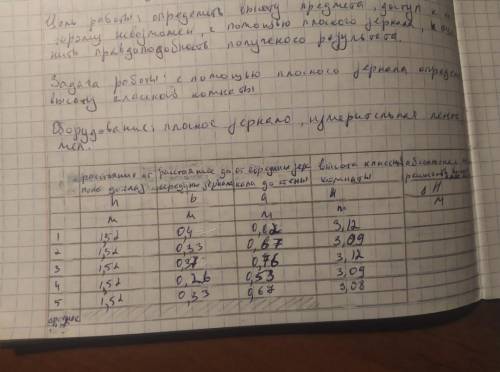 Цель работы: определить высоту предмета, доступ к
которому невозможен, с помощью плоского зеркала, и оце
нить правдоподобность полученого результата.
Задача работы: с помощью плоского зеркала определ
высоту классной комнаты
Оборудование: плоское зеркало, измерительная лента
мел.
расстояние от расстояние до от середины зер высота классн абсолютная
пола до глаз середины зеркала кала до стены комнаты
h b a H ΔH
м м м м м
1 1,52 0,4 0,82 3,12
2 1,52 0,33 0,67 3,09
3 1,52 0,37 0,76 3,12
4 1,52 0,26 0,53 3,09
5 1,52 0,33 0,67 3,08